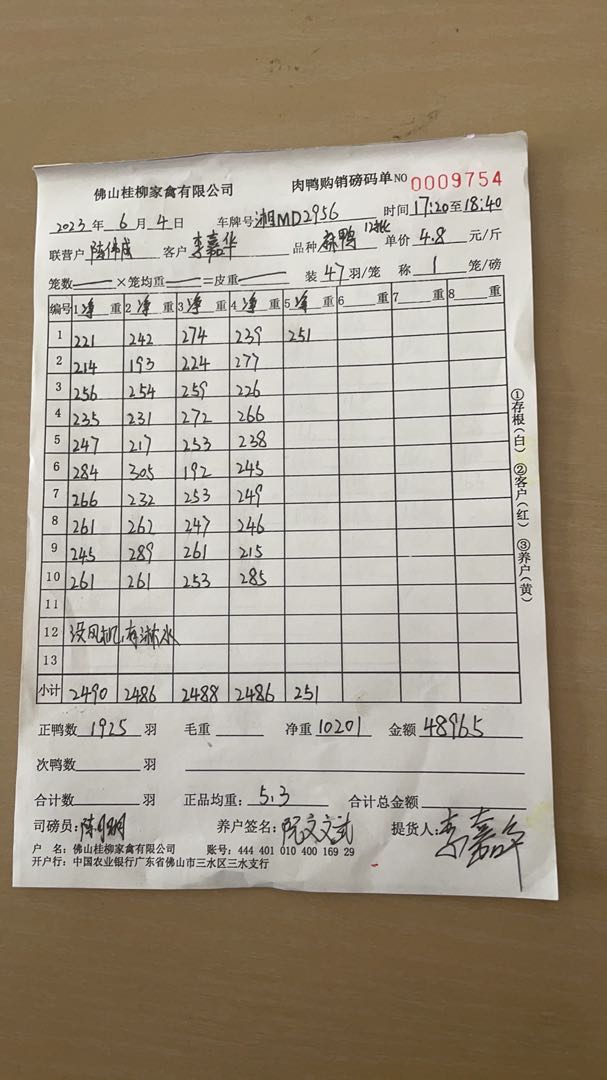 佛山桂柳家禽有限公司 肉鸭购销磅码单 NO 0009754
2023 年 6 月 4 日 车牌号 湘MD2956 时间 17:20 至 18:40
联营户 陈伟成 客户 李嘉华 品种 鸭 12批 单价 4.8 元/斤
笼数 — ×笼均重 — =皮重 — 装 47 羽/笼 称 1 笼/磅
编号 1 净 重 2 净 重 3 净 重 4 净 重 5 净 重 6 重 7 重 8 重
1 221 242 274 239 251
2 214 193 224 277
3 256 254 259 226
4 235 231 272 266
5 247 217 253 238
6 284 305 192 245
7 266 232 253 249
8 261 262 247 246
9 245 289 261 215
10 261 261 253 285
11
12 没风机,有淋水
13
小计 2490 2486 2488 2486 251
正鸭数 1925 羽 毛重 净重 10201 金额 48965
次鸭数 羽
合计数 羽 正品均重: 5.3 合计总金额
司磅员: 陈 养户签名: 阮文武 提货人: 李嘉华
户 名: 佛山桂柳家禽有限公司 账号: 444 401 010 400 169 29
开户行: 中国农业银行广东省佛山市三水区三水支行
①存根(白) ②客户(红) ③养户(黄)